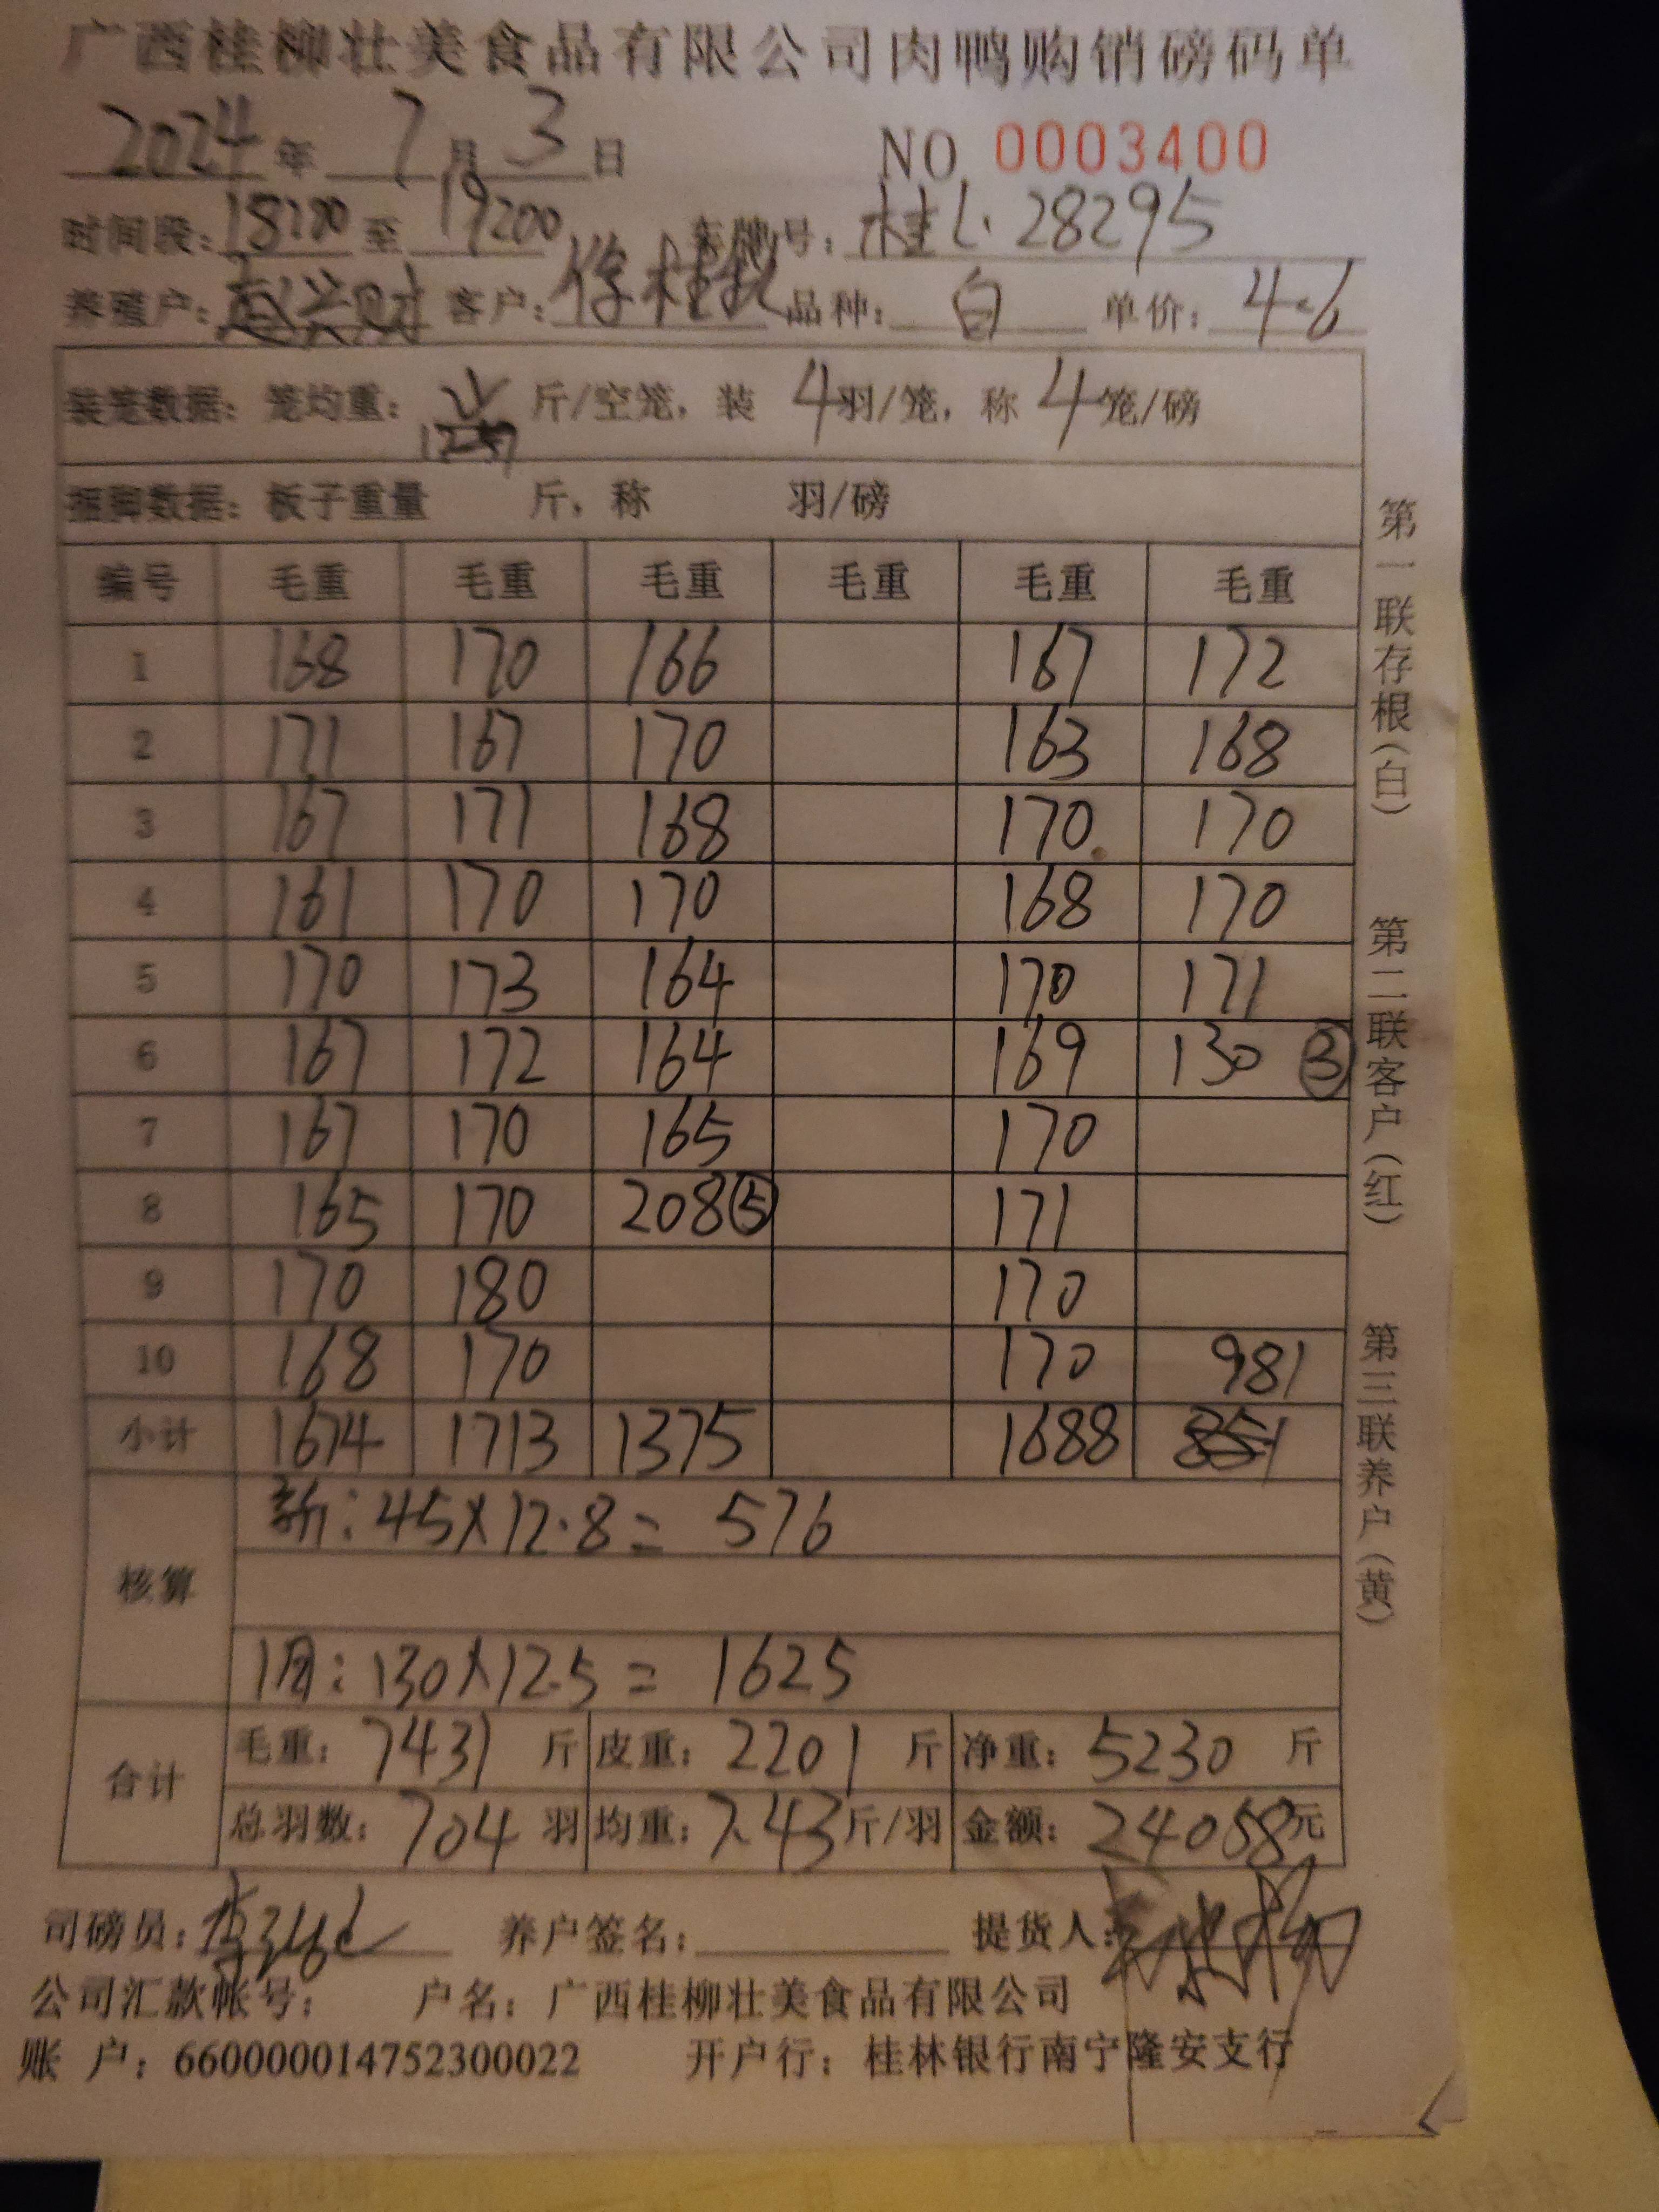 广西桂柳壮美食品有限公司肉鸭购销磅码单
2024年 7月 3日 NO 0003400
时间段: 18:00 至 19:00 车牌号: 桂L·28295
养殖户: 赵兴财 客户: 徐桂 品种: 白 单价: 4.6
装笼数据: 笼均重: 斤/空笼, 装 4羽/笼, 称 4笼/磅
捆脚数据: 板子重量 斤, 称 羽/磅
编号 毛重 毛重 毛重 毛重 毛重 毛重
1 168 170 166 167 172
2 171 167 170 163 168
3 167 171 168 170 170
4 161 170 170 168 170
5 170 173 164 170 171
6 167 172 164 169 130 ③
7 167 170 165 170
8 165 170 208⑤ 171
9 170 180 170
10 168 170 170 981
小计 1674 1713 1375 1688 851
核算
新: 45×12.8= 576
旧: 130×12.5= 1625
合计
毛重: 7431 斤 皮重: 2201 斤 净重: 5230 斤
总羽数: 704 羽 均重: 7.43斤/羽 金额: 24058元
司磅员: 养户签名: 提货人:
公司汇款帐号: 户名: 广西桂柳壮美食品有限公司
账 户: 660000014752300022 开户行: 桂林银行南宁隆安支行
第一联存根(白) 第二联客户(红) 第三联养户(黄)